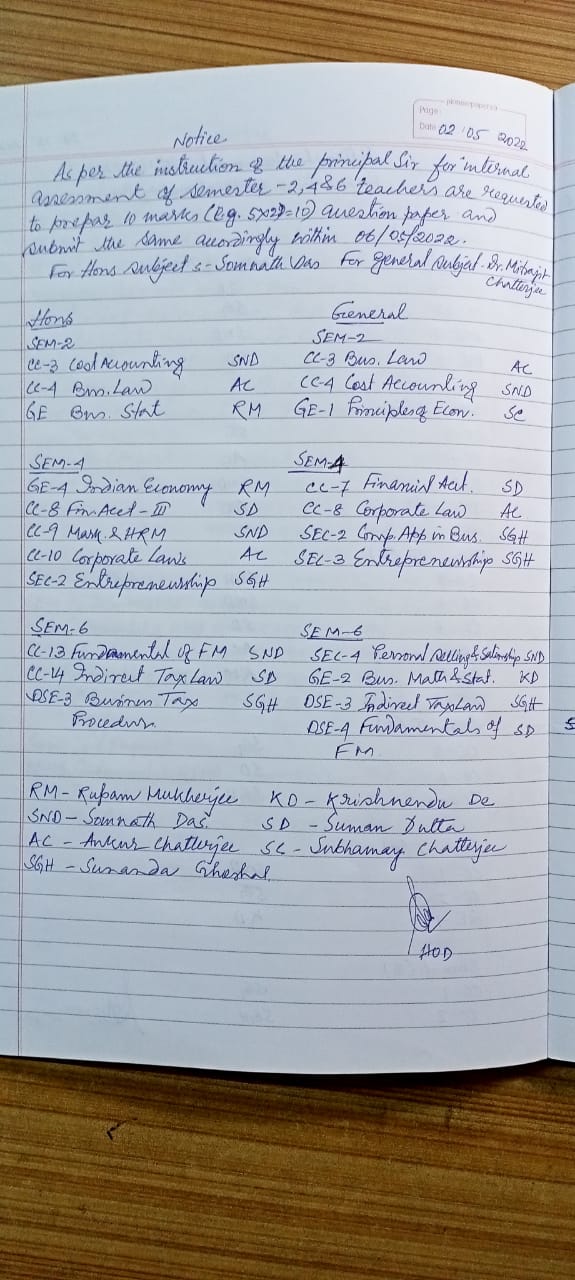 Page:
Date 02 05 2022
Notice
As per the instruction of the principal Sir for internal
assessment of semester - 2, 4 & 6 teachers are requested
to prepar 10 marks (Eg. 5x2=10) question paper and
submit the same accordingly within 06/05/2022.
For Hons subject s - Somnath Das For general subject - Dr. Mitrajit
Chatterjee
Hons General
SEM-2 SEM-2
CC-3 Cost Accounting SND CC-3 Bus. Law AC
CC-4 Bus. Law AC CC-4 Cost Accounting SND
GE Bus. Stat RM GE-1 Principles of Econ. SC
SEM-4 SEM-4
GE-4 Indian Economy RM CC-7 Financial Acct. SD
CC-8 Fin. Acct - III SD CC-8 Corporate Law AC
CC-9 Mark. & HRM SND SEC-2 Comp. App in Bus. SGH
CC-10 Corporate Laws AC SEC-3 Entrepreneurship SGH
SEC-2 Entrepreneurship SGH
SEM-6 SEM-6
CC-13 Fundamental of FM SND SEC-4 Personal Selling & Salesmship SND
CC-14 Indirect Tax Law SD GE-2 Bus. Math & Stat. KD
DSE-3 Business Tax SGH DSE-3 Indirect Tax Land SGH
Procedur. DSE-4 Fundamentals of SD
FM
RM - Rupam Mukherjee KD - Krishnendu De
SND - Somnath Das. SD - Suman Dutta
AC - Ankur Chatterjee SC - Subhamay Chatterjee
SGH - Sunanda Ghoshal
HOD